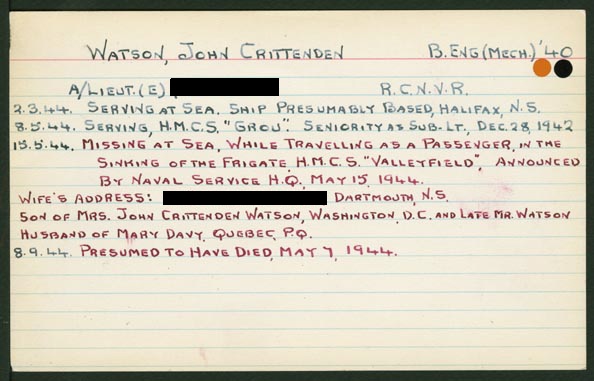 WATSON, JOHN CRITTENDEN B. ENG (MECH.) '40
A/LIEUT. (E) R.C.N.V.R.
2.3.44. SERVING AT SEA. SHIP PRESUMABLY BASED, HALIFAX, N.S.
8.5.44. SERVING, H.M.C.S. "GROU". SENIORITY AS SUB-LT., DEC. 28, 1942
15.5.44. MISSING AT SEA, WHILE TRAVELLING AS A PASSENGER, IN THE
SINKING OF THE FRIGATE, H.M.C.S. "VALLEYFIELD", ANNOUNCED
BY NAVAL SERVICE H.Q., MAY 15, 1944.
WIFE'S ADDRESS: DARTMOUTH, N.S.
SON OF MRS. JOHN CRITTENDEN WATSON, WASHINGTON, D.C. AND LATE MR. WATSON
HUSBAND OF MARY DAVY, QUEBEC, P.Q.
8.9.44. PRESUMED TO HAVE DIED, MAY 7, 1944.